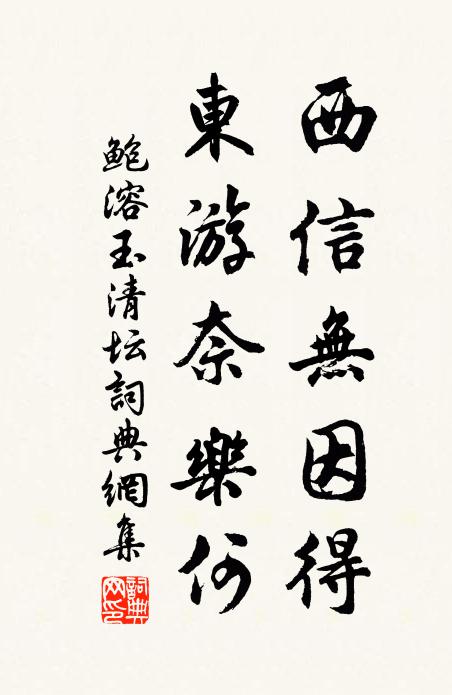 西信無因得
東游奈樂何
鲍溶玉清坛詞典網集
詞典网印